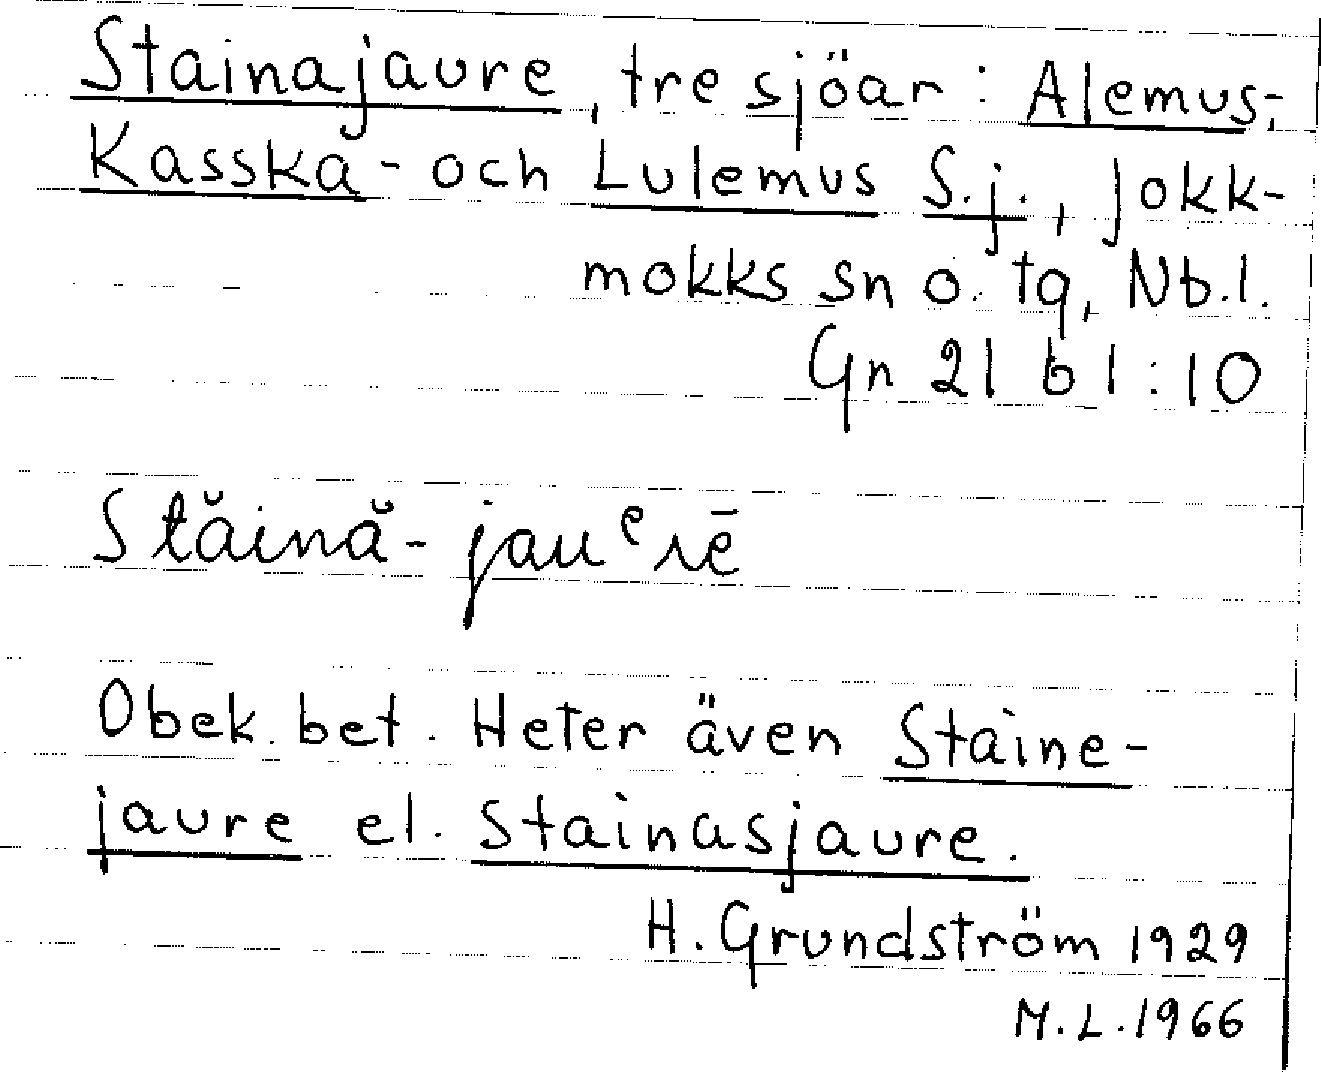 Stainajaure, tre sjöar: Alemus-,
Kasska- och Lulemus S.j., Jokk-
mokks sn o. tg, Nb.l.
Gn 21 b 1:10
Stăină-jauᵉrē
Obek. bet. Heter även Staine-
jaure el. Stainasjaure.
H. Grundström 1929
M.L. 1966